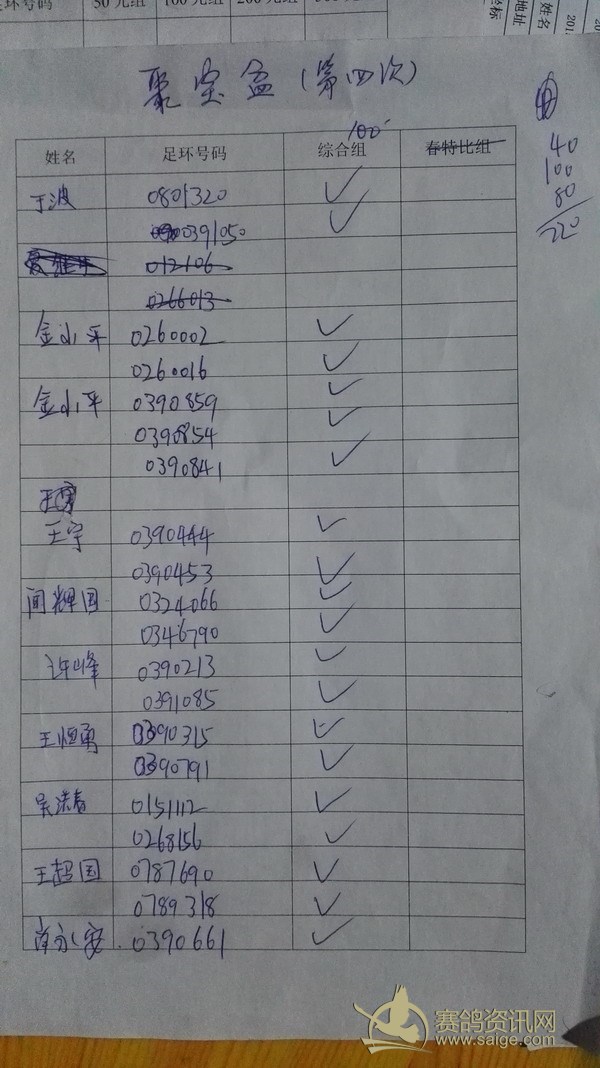 足环号码 50元组 100元组 200元组
姓名
地址
聚宝盆(第四次)
40
100
80
220
100
姓名 足环号码 综合组 春特比组
于波 0801320 ✓
0391050 ✓
012106
0266013
金小平 0260002 ✓
0260016 ✓
金小平 0390859 ✓
0390854 ✓
0390841 ✓
王宇 0390444 ✓
0390453 ✓
闻辉国 0324066 ✓
0346790 ✓
许峰 0390213 ✓
0391085 ✓
王恒勇 0390315 ✓
0390791 ✓
0151112 ✓
0268156 ✓
王超国 0787690 ✓
0789318 ✓
0390661 ✓
赛鸽资讯网
www.saige.com